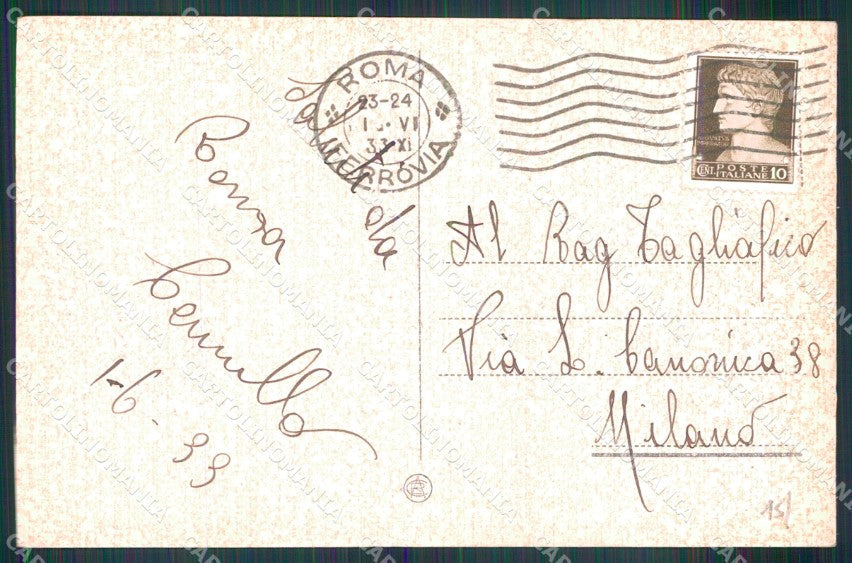 ROMA
23-24
1 . VI
33 XI
FERROVIA
POSTE
CENT. ITALIANE 10
Saluti da
1-6-33
Al Rag Tagliafico
Via L. Canonica 38
Milano
15/
CARTOLINOMANIA